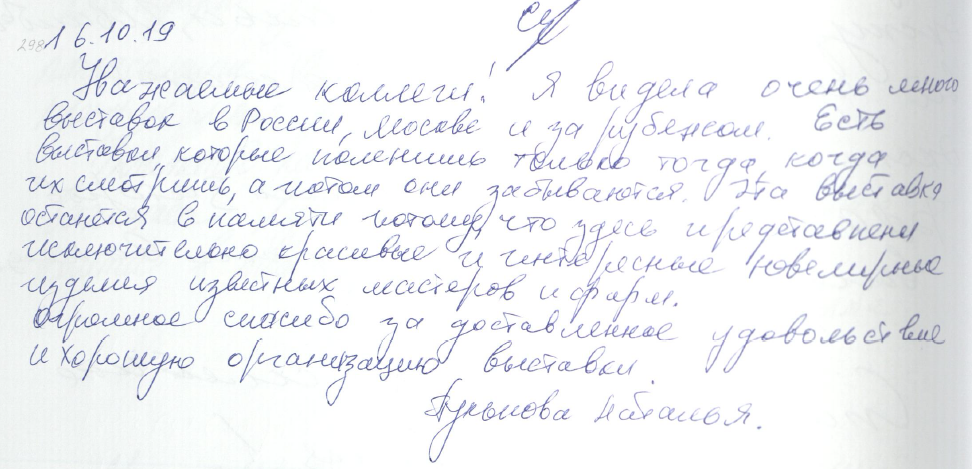 16.10.19
Уважаемые коллеги! Я видела очень много
выставок в России, Москве и за рубежом. Есть
выставки, которые помнишь только тогда, когда
их смотришь, а потом они забываются. Эта выставка
останется в памяти потому, что здесь представлены
исключительно красивые и интересные ювелирные
изделия известных мастеров и фирм.
Огромное спасибо за доставленное удовольствие
и хорошую организацию выставки.
Наталья.